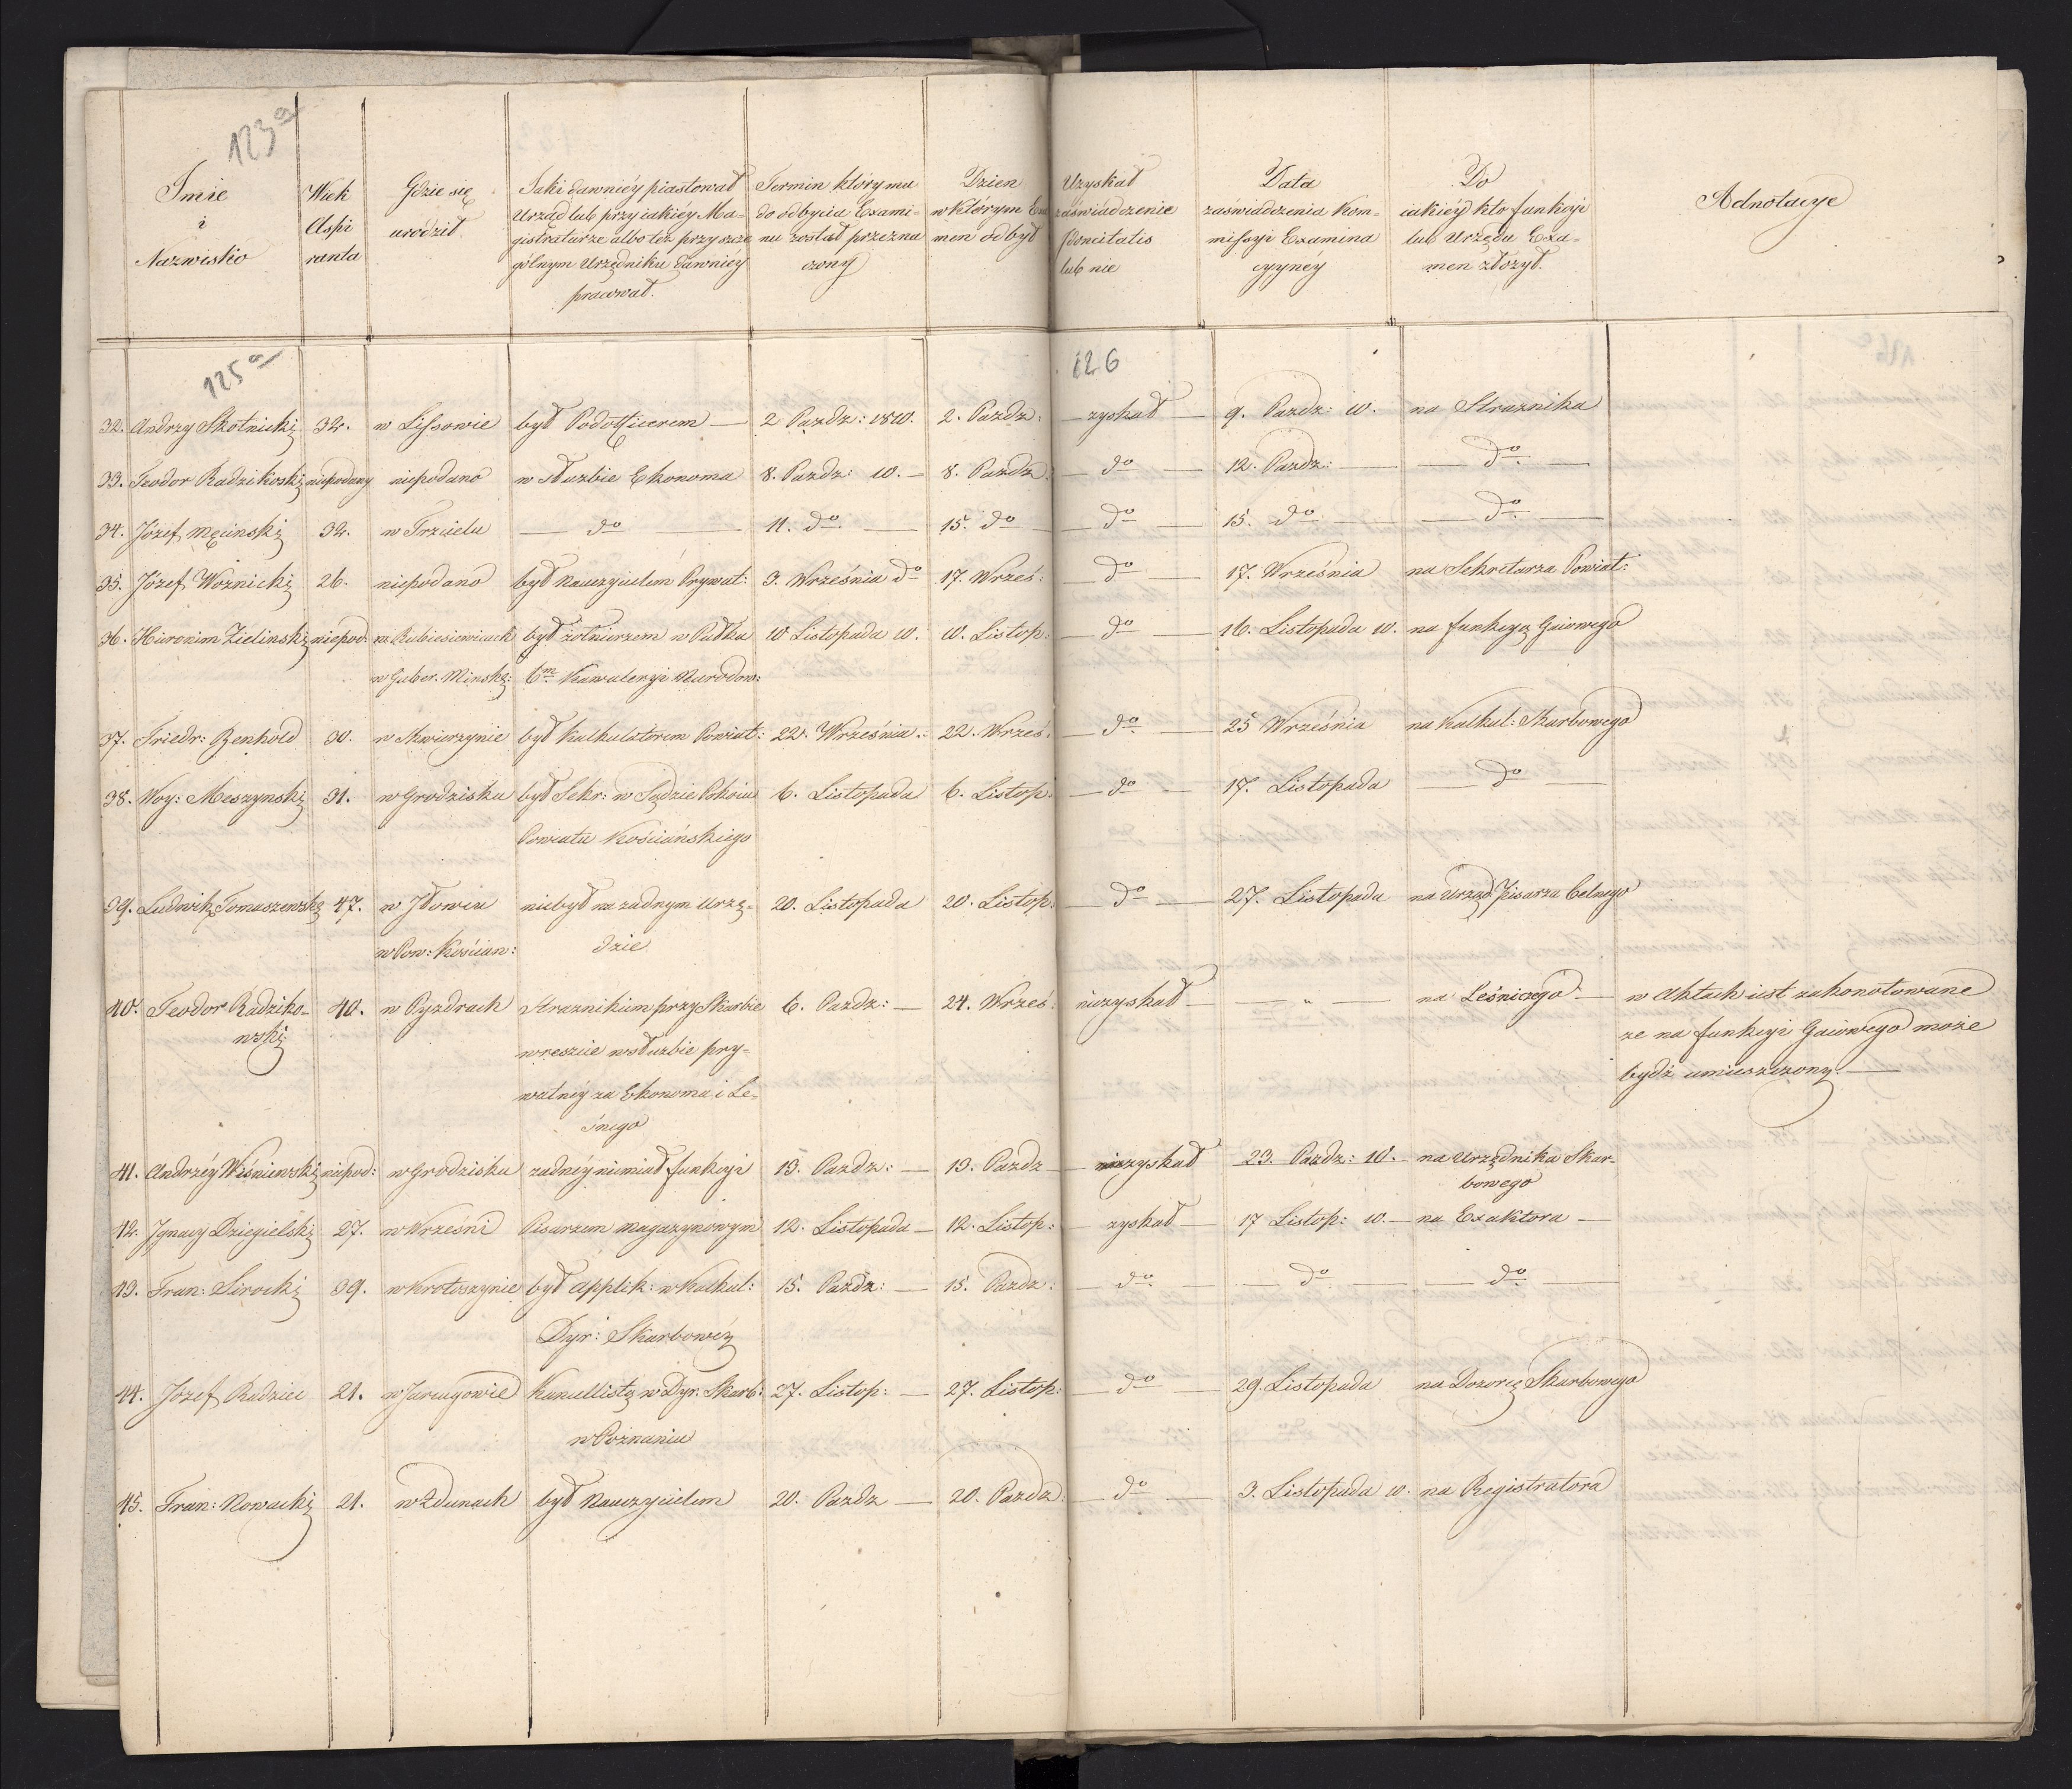 123a
Imie
i
Nazwisko
Wiek
Aspi
ranta
Gdzie się
urodził
Jaki dawniéy piastował
Urząd lub przy iakiéy Ma=
gistraturze albo też przy szcze
gólnym Urzędniku dawniéy
pracował.
Termin który mu
do odbycia Exami=
nu został przezna
czony
Dzien
w którym Exa
men odbył
Uzyskał
zaświadczenie
Idoneitatis
lub nie
Data
zaświadczenia Kom=
missyi Examina
cyynéy
Do
iakiéy kto funkcyi
lub Urzędu Exa=
men złożył.
Adnotacye
125a
126
32. Andrzy Skotnicki 32. w Lissowie był Podofficerem — 2 Pazdz: 1810. 2. Pazdz: — zyskał — 9. Pazdz: 10. na Straznika
33. Teodor Radzikoski niepodany niepodano w służbie Ekonoma 8. Pazdz: 10. — 8. Pazdz: — do — 12. Pazdz: — do —
34. Józef Męcinski 32. w Trzcielu — do — 11. do — 15. do — do — 15. do — do —
35. Józef Woznicki 26. niepodano był Nauczycielem Prywat: 3. Września do 17. Wrześ: — do — 17. Września na Sekretarza Powiat:
36. Hieronim Zielinski niepod: w Rubiesiewicach był zołnierzem w Pułku 10 Listopada 10. 10. Listop: — do — 16. Listopada 10. na funkcyą Gaiowego
w Guber. Minsk: 6m Kawaleryi Narodow:
37. Friedr: Benhold 30. w Skwierzynie był Kalkulatorem Powiat: 22. Września. 22. Wrześ: — do — 25 Września na Kalkul: Skarbowego
38. Woy: Meszynski 31. w Grodzisku był Sekr: w Sądzie Pokoiu 6. Listopada 6. Listop: — do — 17. Listopada — do —
Powiatu Kościańskiego
39. Ludwik Tomaszewski 47. w Jłowcu niebył na zadnym Urzę= 20. Listopada 20. Listop: — do — 27. Listopada na Urząd Pisarza Celnego
w Pow: Kościan: dzie
40. Teodor Radziko= 40. w Pyzdrach Straznikiem przy Skarbie 6. Pazdz: — 24. Wrześ: niezyskał — " — na Leśniczego — w Aktach iest zakonotowane
wski wreszcie w służbie pry= ze na funkcyi Gaiowego może
watnéy za Ekonoma i Le= bydź umieszczony. —
śnego
41. Andrzéy Wiśniewski niepod: w Grodzisku zadnéy niemiał funkcyi 13. Pazdz: — 13. Pazdz — niezyskał 23. Pazdz: 10. — na Urzędnika Skar=
bowego
42. Jgnacy Dziegielski 27. w Wrześni Pisarzem magazynowym 12. Listopada — 12. Listop: — zyskał — 17 Listop: 10. — na Exaktora —
43. Fran: Sirocki 39. w Krotoszynie był Applik: w Kalkul: 15. Pazdz: — 15. Pazdz: — do — do — do —
Dyr: Skarbowéy
44. Józef Radziec 21. w Jarugowie Kancellistą w Dyr: Skarb: 27. Listop: — 27. Listop: — do — 29. Listopada na Dozorcę Skarbowego
w Poznaniu
45. Fran: Nowacki 21. w Zdunach był Nauczycielem 20. Pazdz — 20. Pazdz: — do — 3. Listopada 10. na Registratora